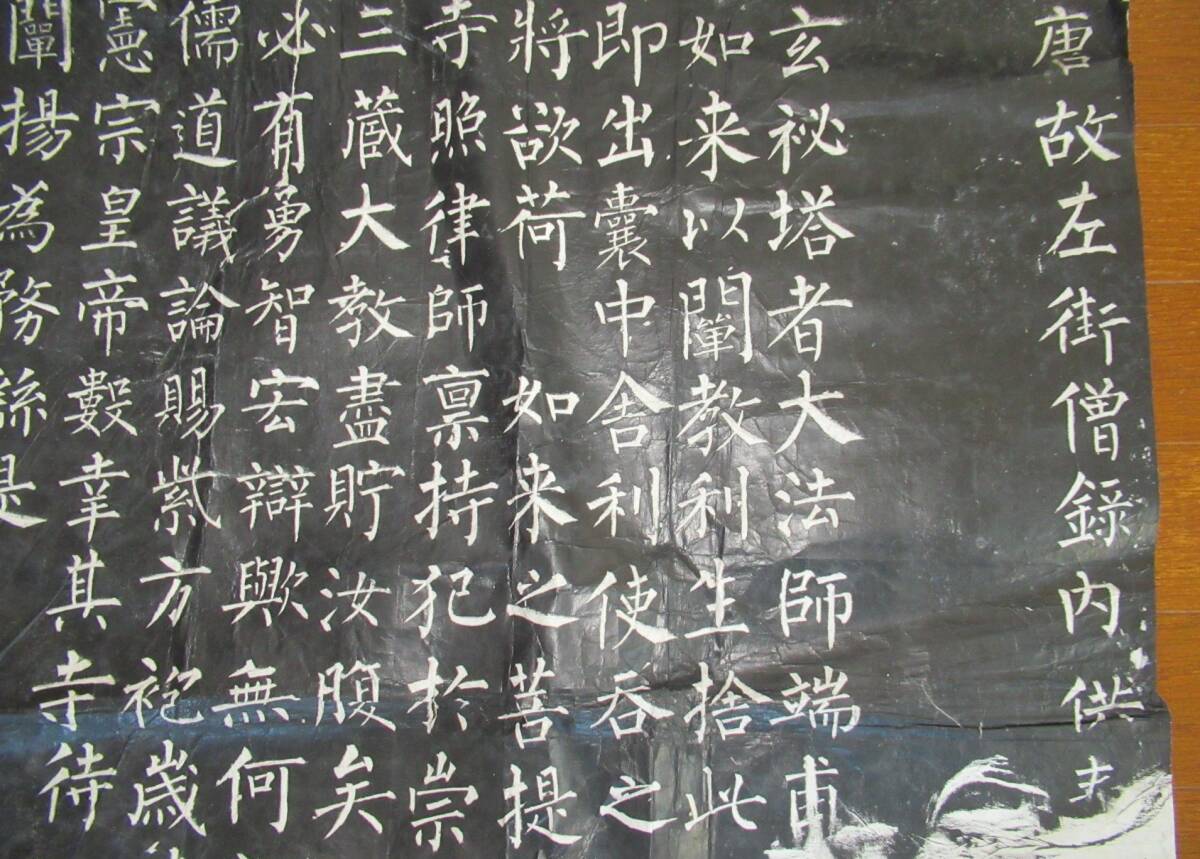 唐故左街僧錄内供
玄祕塔者大法師端甫
如来以闡教利生捨此
即出囊中舍利使吞之
將欲荷如来之菩提
寺照律師禀持犯於崇
三藏大教盡貯汝腹矣
必有勇智宏辯歟無何
儒道議論賜紫方袍歲
憲宗皇帝數幸其寺待
闡揚為務繇是